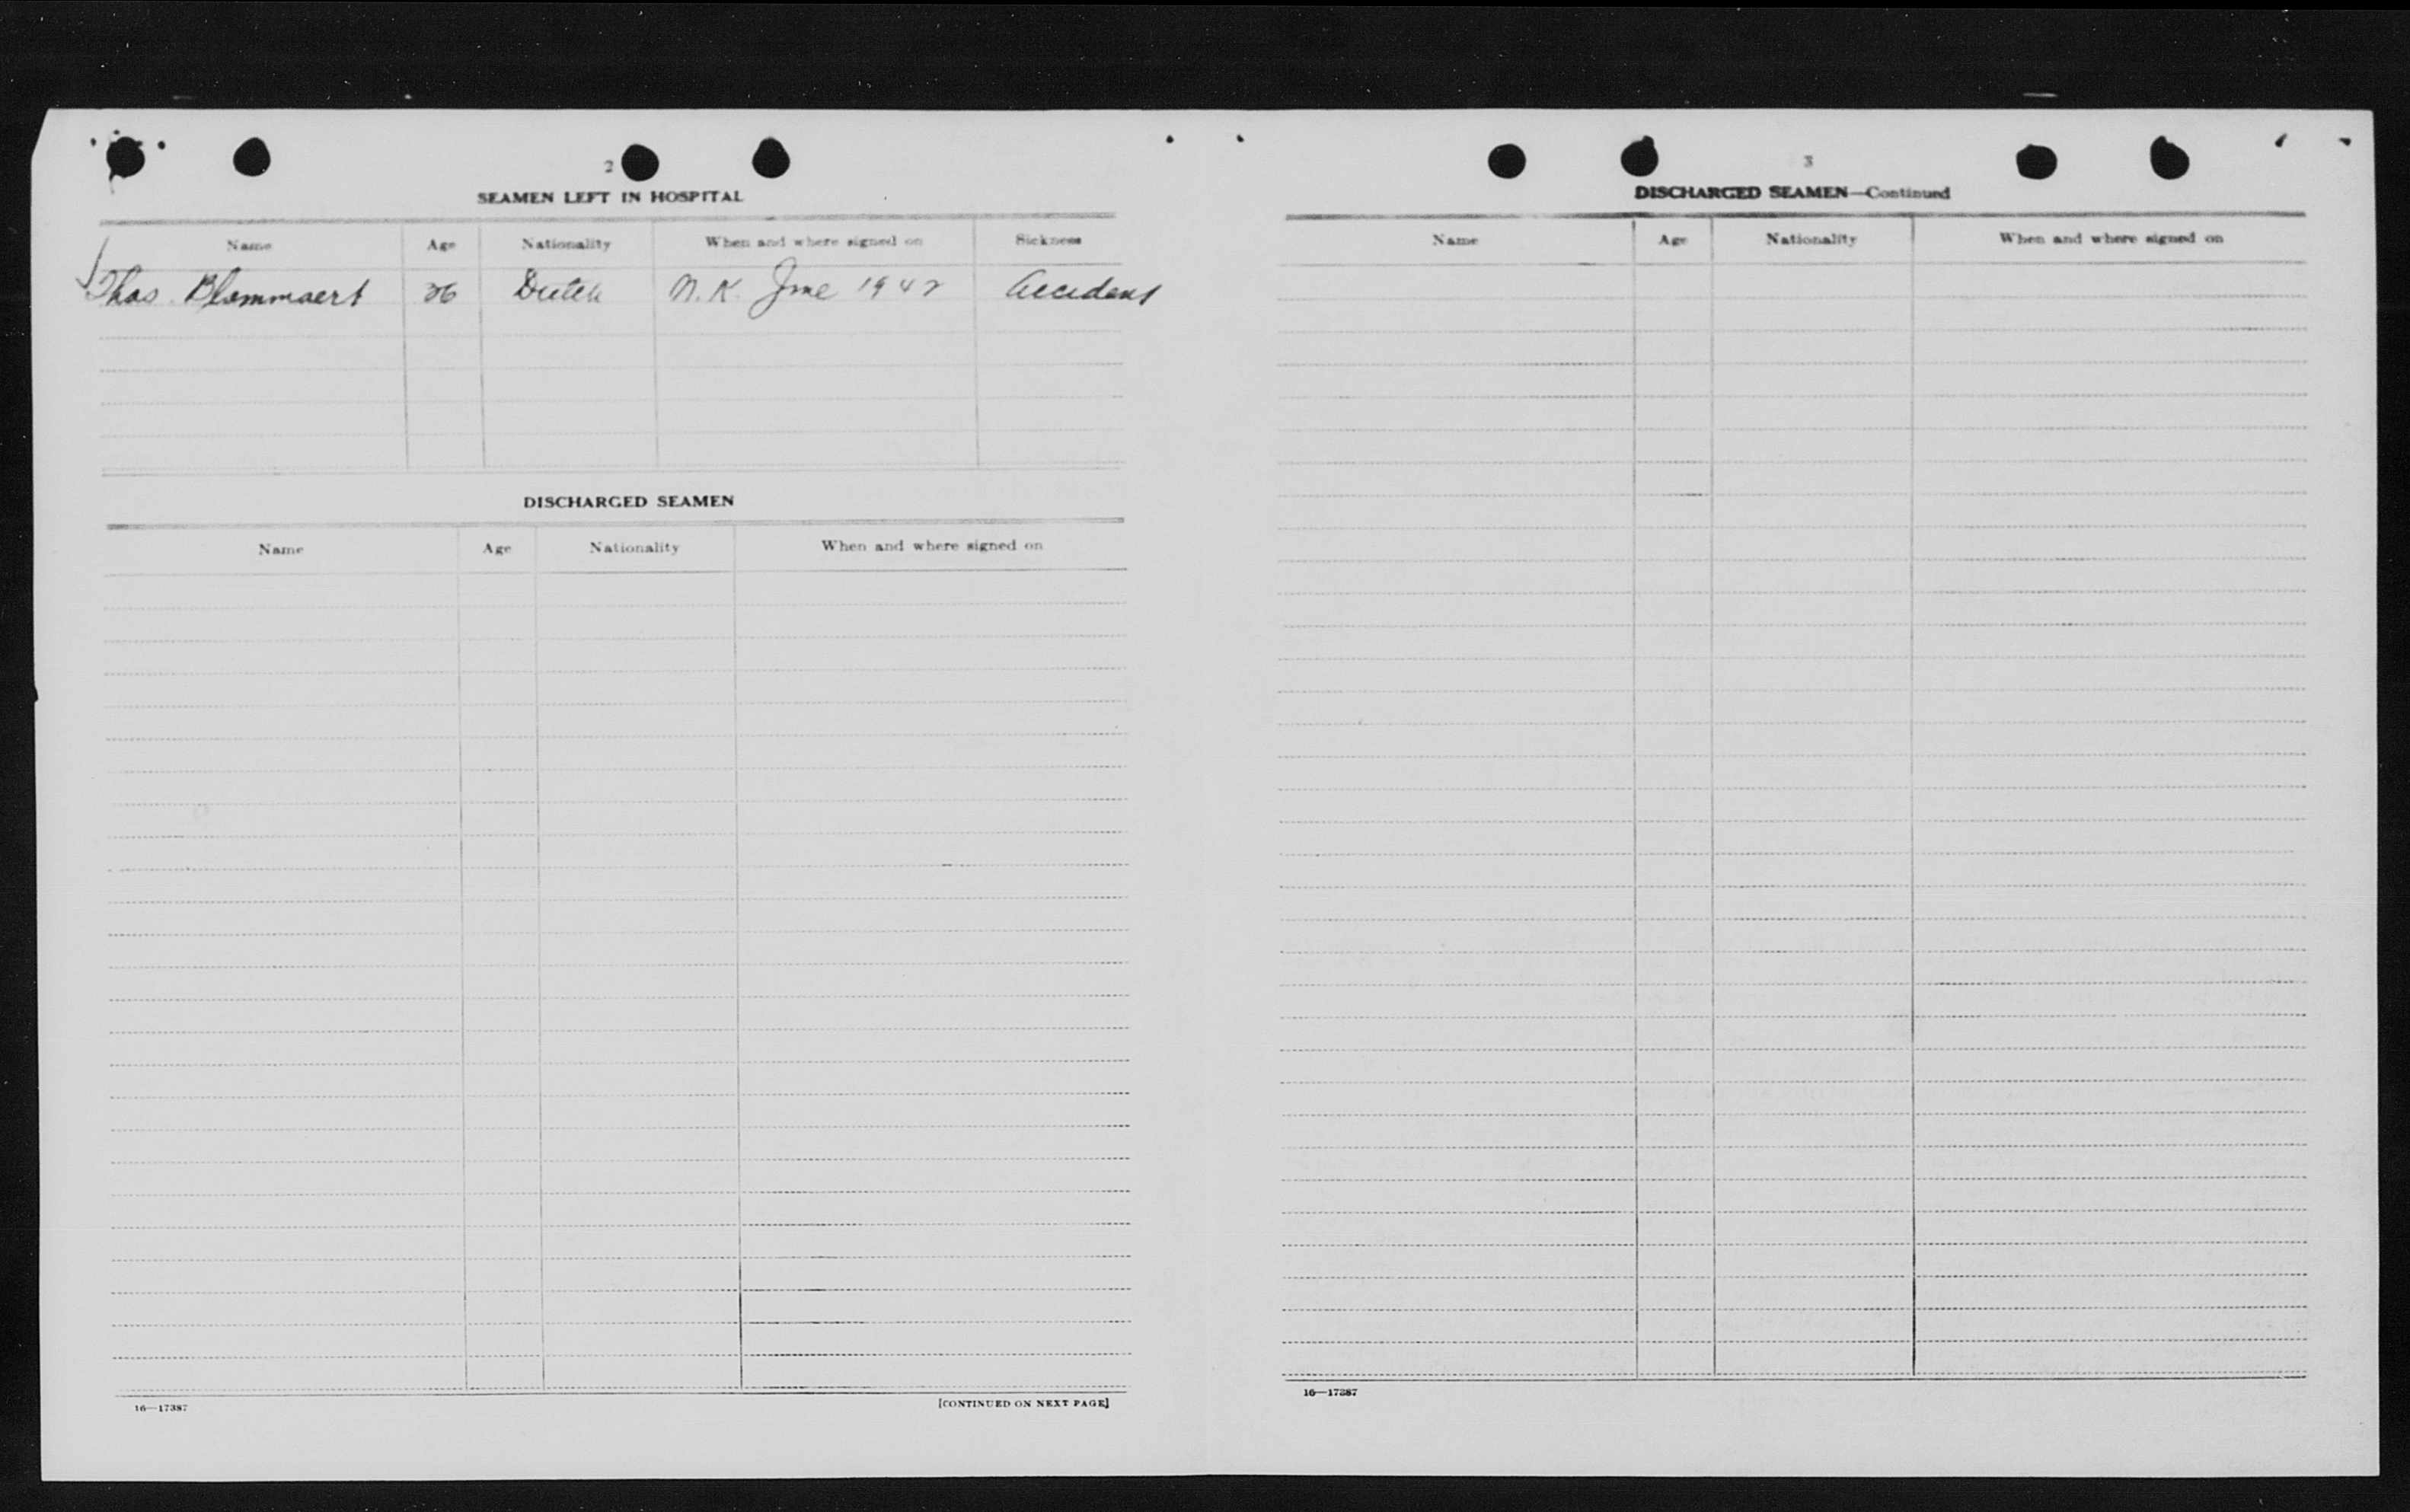 2
SEAMEN LEFT IN HOSPITAL
Name Age Nationality When and where signed on Sickness
Thos Blommaert 26 Dutch June 1942 Accident
DISCHARGED SEAMEN
Name Age Nationality When and where signed on
16—17387 [CONTINUED ON NEXT PAGE]
3
DISCHARGED SEAMEN—Continued
Name Age Nationality When and where signed on
16—17387